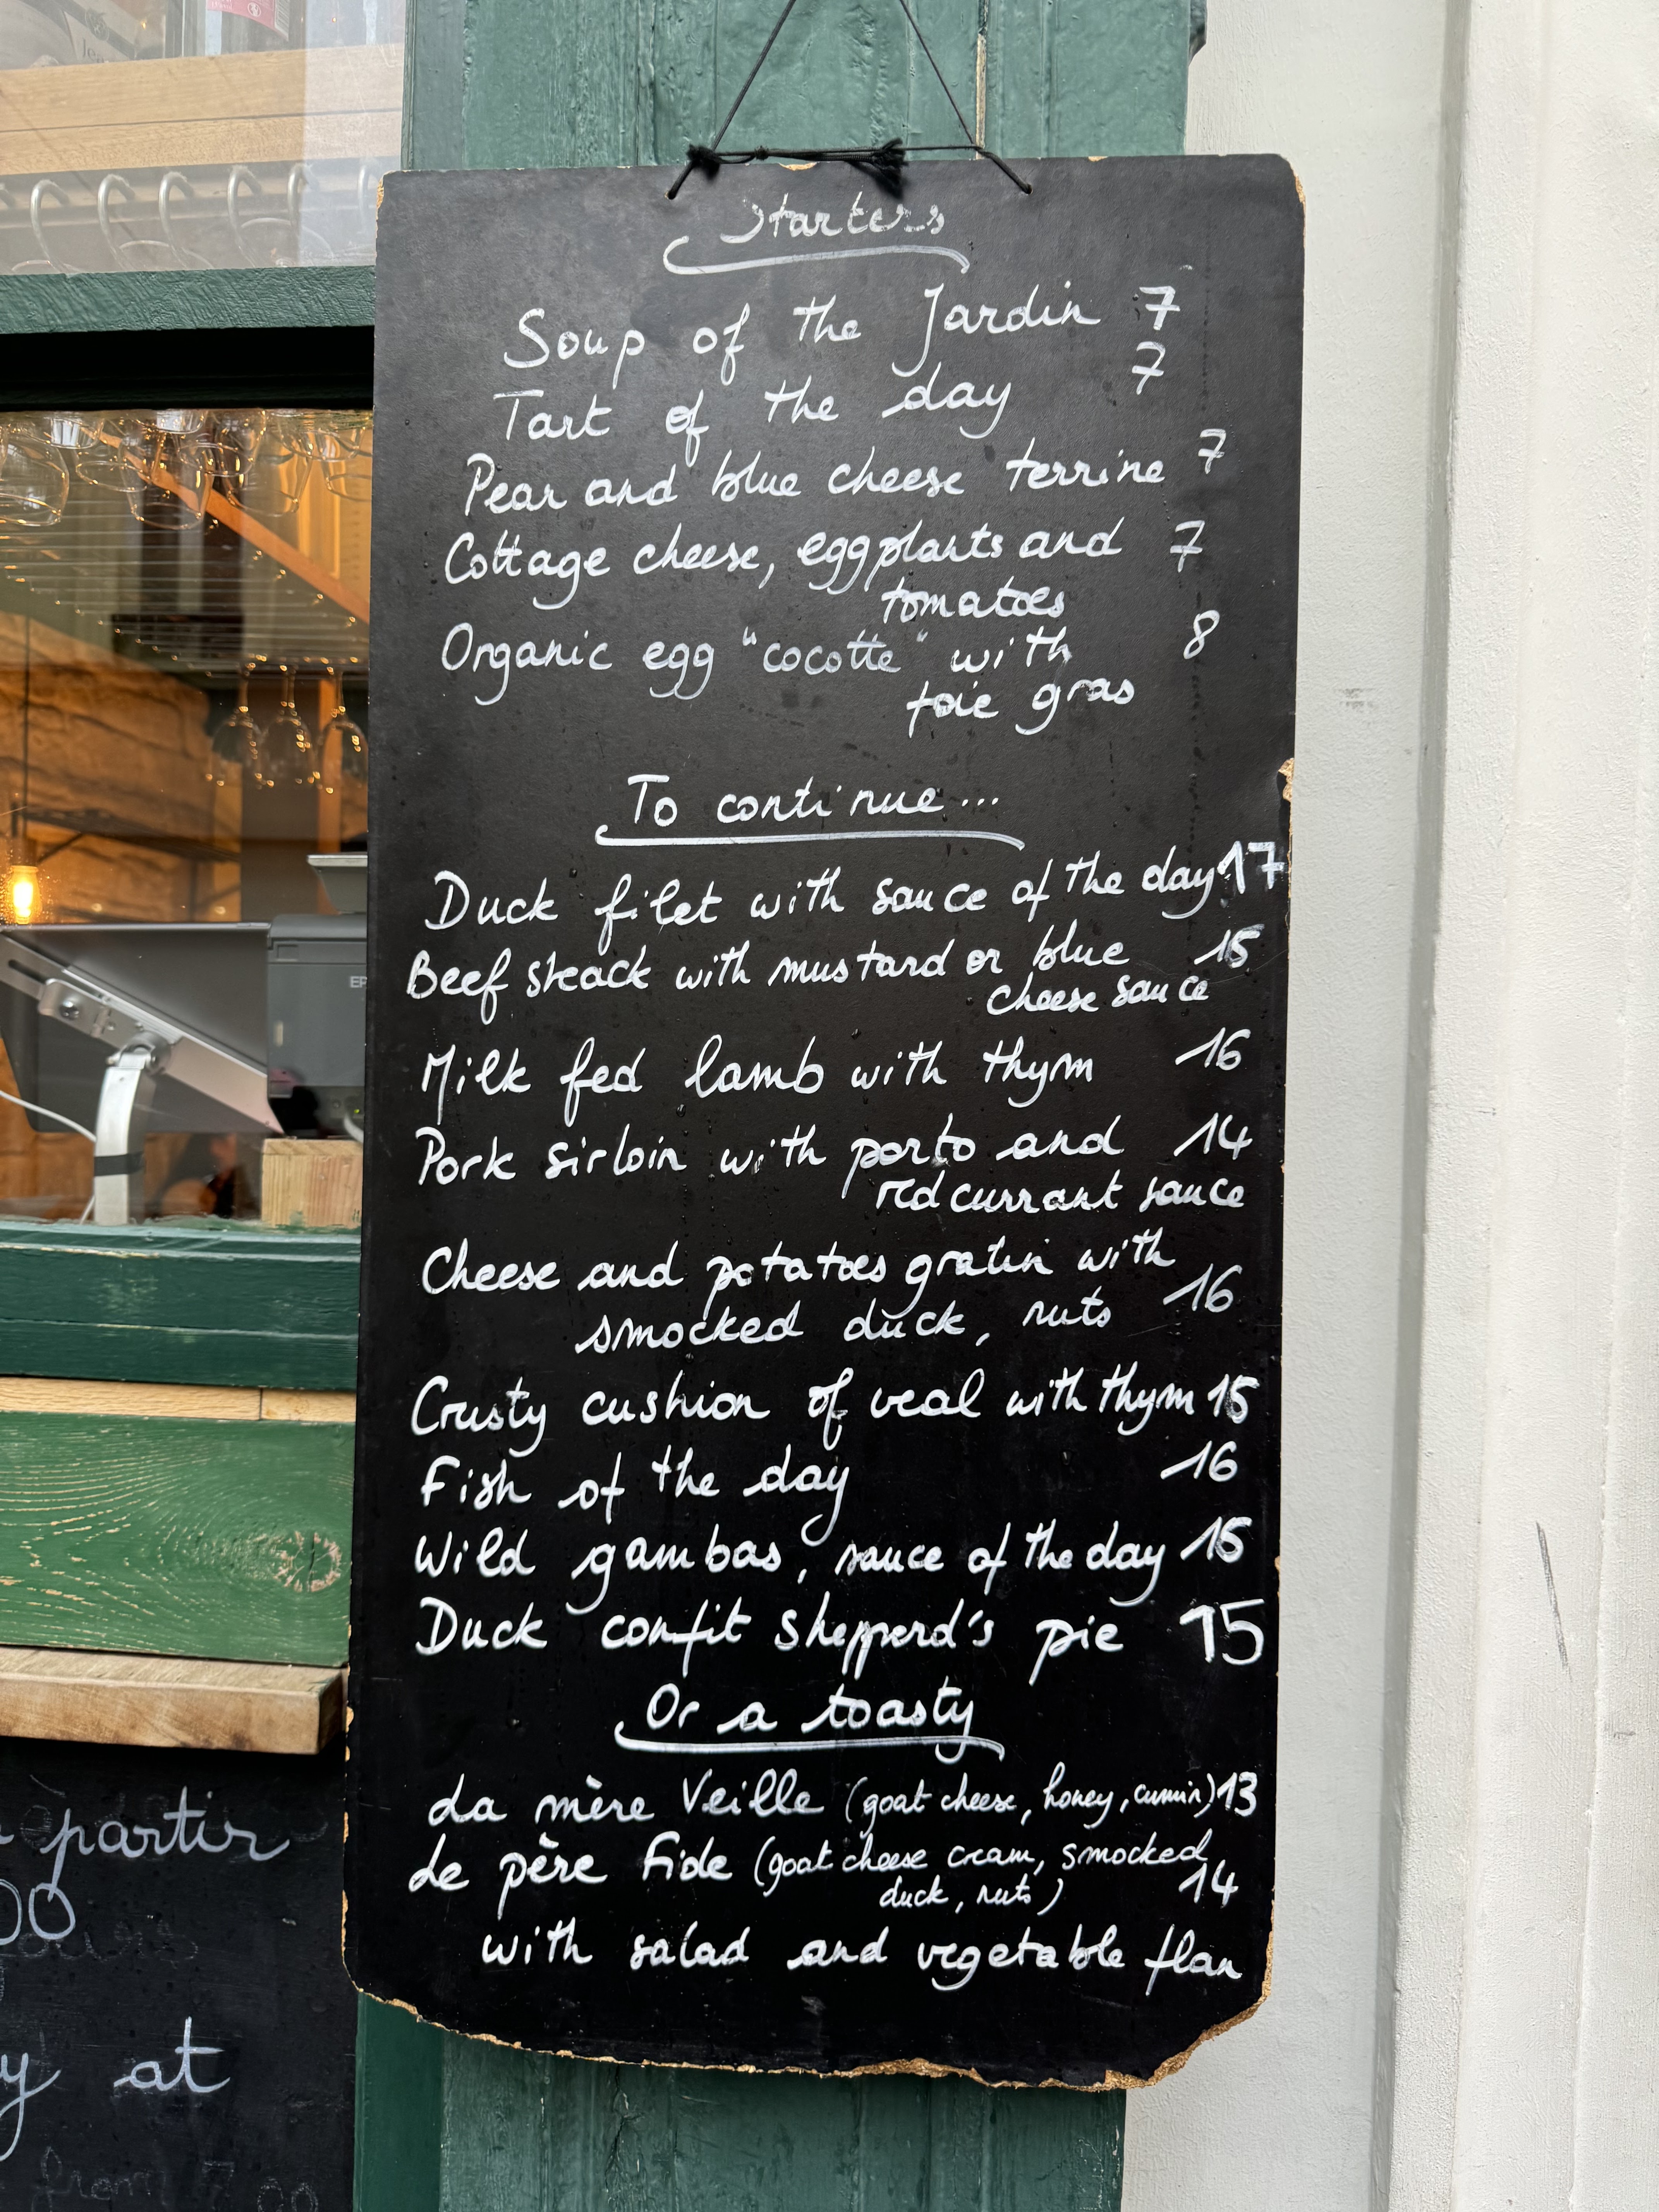 Starters
Soup of the Jardin 7
Tart of the day 7
Pear and blue cheese terrine 7
Cottage cheese, eggplants and 7
tomatoes
Organic egg "cocotte" with 8
foie gras
To continue...
Duck filet with sauce of the day 17
Beef steack with mustard or blue 15
cheese sauce
Milk fed lamb with thym 16
Pork sirloin with porto and 14
red currant sauce
Cheese and potatoes gratin with
smocked duck, nuts 16
Crusty cushion of veal with thym 15
Fish of the day 16
Wild gambas, sauce of the day 15
Duck confit shepperd's pie 15
Or a toasty
La mère Veille (goat cheese, honey, cumin) 13
Le père Fide (goat cheese cream, smocked
duck, nuts) 14
with salad and vegetable flan
partir
00
y at
from
EP